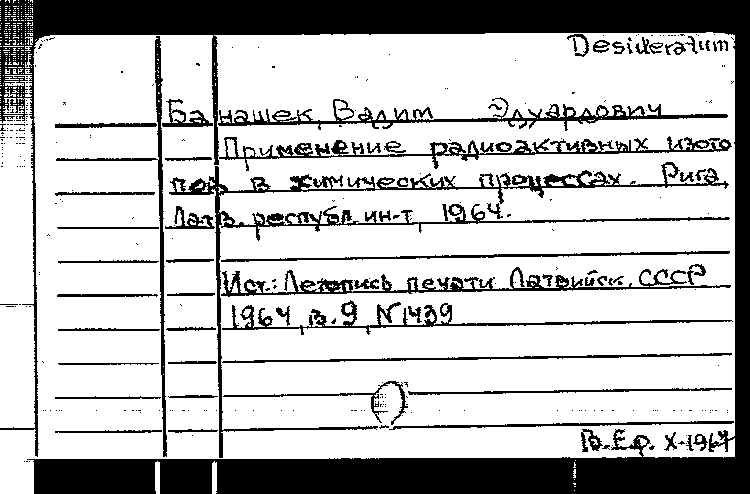 Desideratum
Банашек, Вадим Эдуардович
Применение радиоактивных изото
пов в химических процессах. Рига,
Латв. республ. ин-т, 1964.
Ист.: Летопись печати Латвийск. ССР
1964, в. 9, N 1439
В.Е.р. X-1967